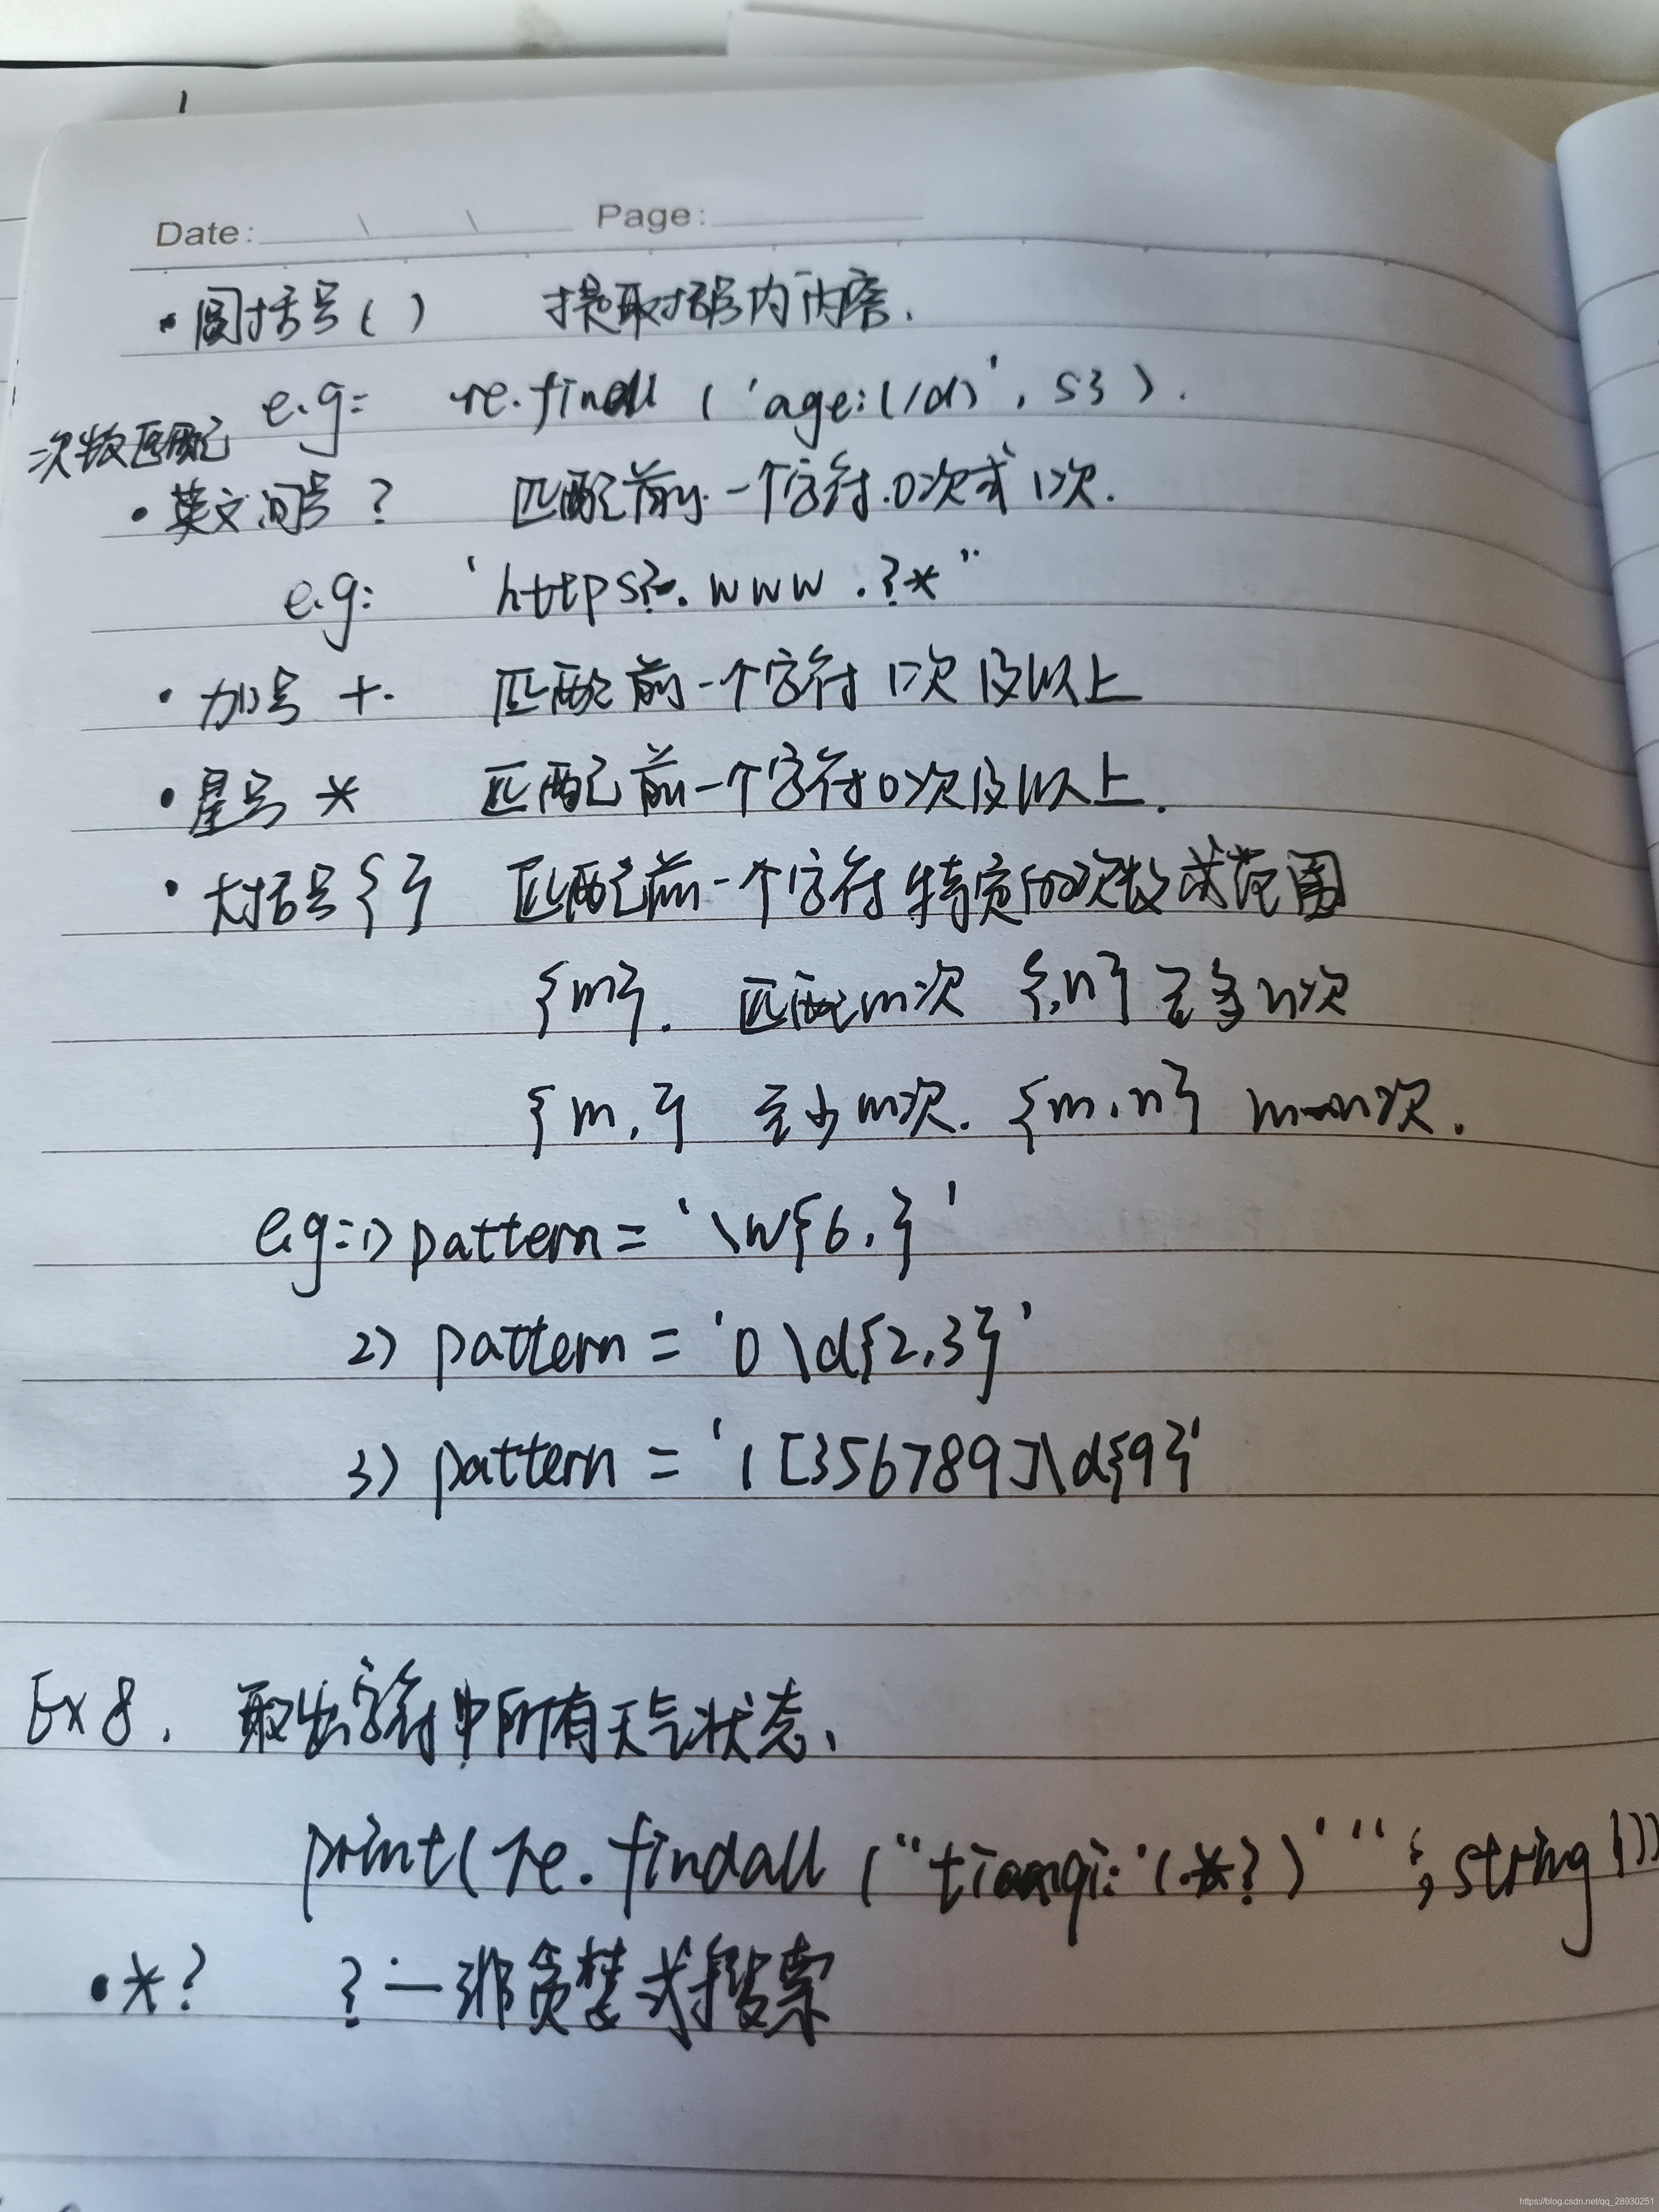 1
Date: \ \ Page:
· 圆括号 ( ) 提取括号内内容.
e.g: re.findall ('age:(/d)', s3).
次数匹配
· 英文问号 ? 匹配前一个字符.0次或1次.
e.g: 'https?.www.?*"
· 加号 +. 匹配前一个字符1次及以上
· 星号 * 匹配前一个字符0次及以上.
· 大括号{} 匹配前一个字符特定的次数或范围
{m}. 匹配m次 {,n} 至多n次
{m,} 至少m次. {m,n} m-n次.
e.g:1) pattern = '\w{6,}'
2) pattern = '0\d{2,3}'
3) pattern = '1[356789]\d{9}'
Ex 8. 取出字符中所有天气状态.
print(re.findall ("tianqi:'(.*?)'", string1))
· *? ?—非贪婪式搜索
https://blog.csdn.net/qq_28930251